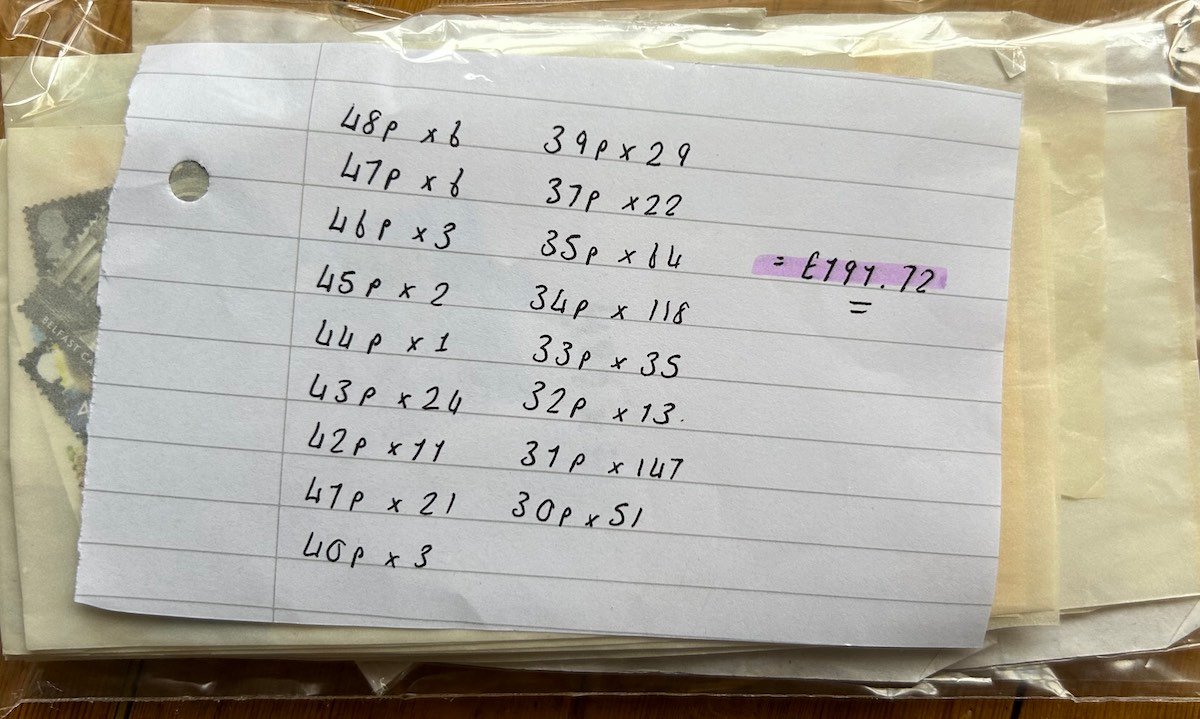 48p x 6
47p x 6
46p x 3
45p x 2
44p x 1
43p x 24
42p x 11
41p x 21
40p x 3
39p x 29
37p x 22
35p x 64
34p x 118
33p x 35
32p x 13.
31p x 147
30p x 51
= £191.72
BELFAST CA